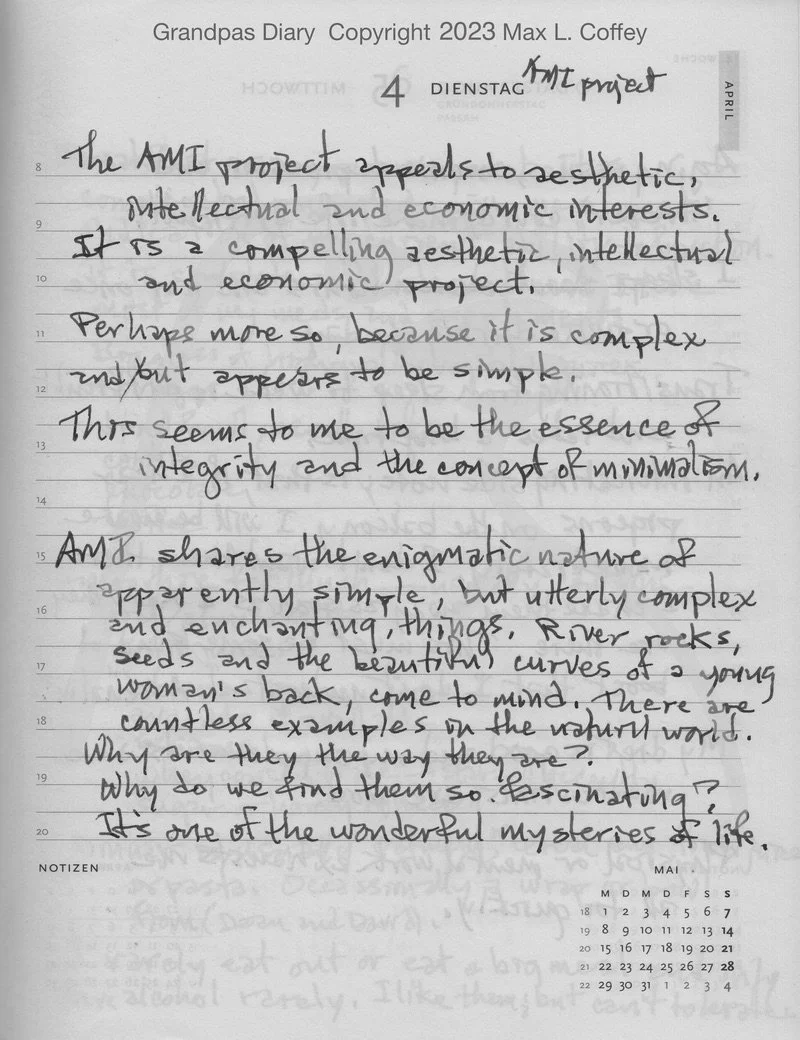 Grandpas Diary Copyright 2023 Max L. Coffey
4 DIENSTAG AMI project
APRIL
8 The AMI project appeals to aesthetic,
intellectual and economic interests.
9
It is a compelling aesthetic, intellectual
10 and economic project.
11 Perhaps more so, because it is complex
and/but appears to be simple.
12
This seems to me to be the essence of
13 integrity and the concept of minimalism.
14
15 AMI shares the enigmatic nature of
apparently simple, but utterly complex
16 and enchanting, things. River rocks,
seeds and the beautiful curves of a young
17 woman's back, come to mind. There are
18 countless examples in the natural world.
Why are they the way they are?
19 Why do we find them so fascinating?
20 It's one of the wonderful mysteries of life.
NOTIZEN
MAI
M D M D F S S
18 1 2 3 4 5 6 7
19 8 9 10 11 12 13 14
20 15 16 17 18 19 20 21
21 22 23 24 25 26 27 28
22 29 30 31 1 2 3 4